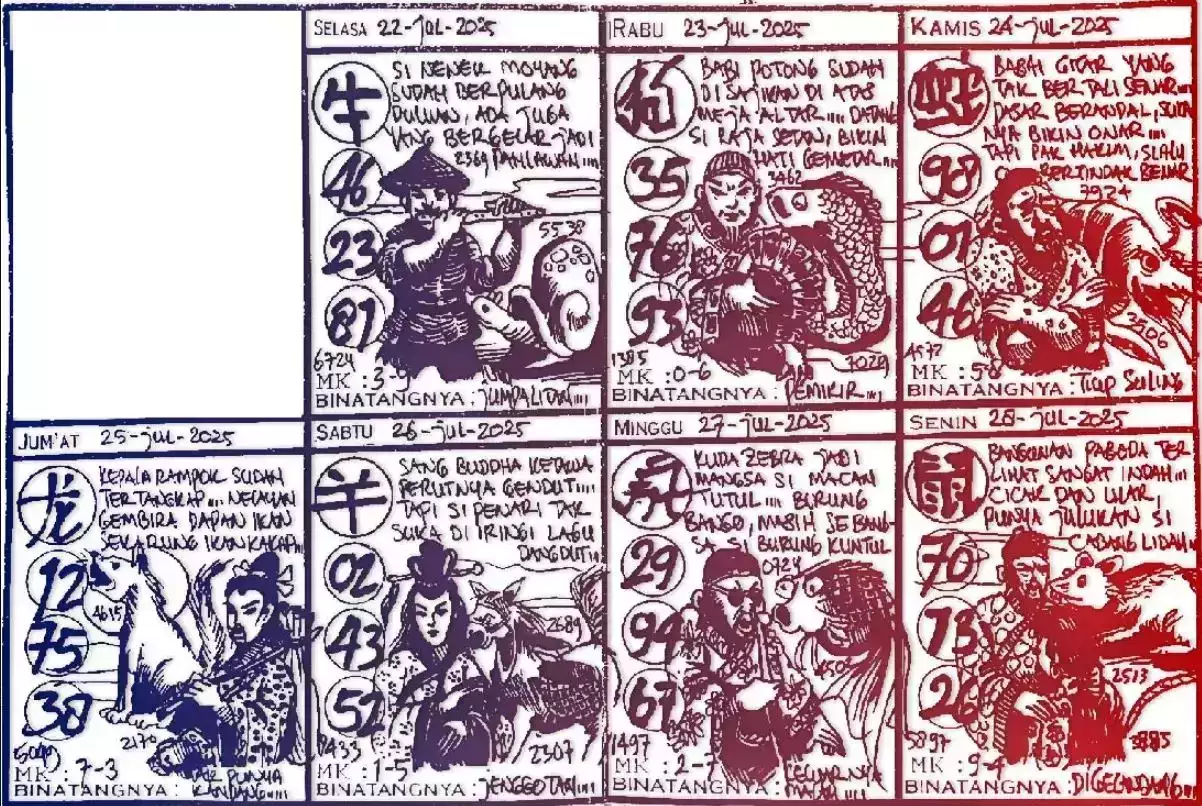 SELASA 22-JUL-2025
牛
SI NENEK MOYANG
SUDAH BERPULANG
DULUAN, ADA JUGA
YANG BERGELAR JADI
2369 PAHLAWAN....
46
23
87
5538
6724
MK : 3-9
BINATANGNYA :
RABU 23-JUL-2025
狗
BABI POTONG SUDAH
DISAJIKAN DI ATAS
MEJA ALTAR.... DATANG
SI RAJA SETAN, BIKIN
HATI GEMETAR....
3462
35
76
93
1385
7029
MK : 0-6
BINATANGNYA : PEMIKIR....
KAMIS 24-JUL-2025
蛇
BABAH GITAR YANG
TAK BERTALI SENAR....
DASAR BERANDAL, SUKA
NYA BIKIN ONAR....
TAPI PAK HAKIM, SLALU
BERTINDAK BENAR
7924
98
01
46
2906
4572
MK : 5-8
BINATANGNYA : TIUP SULING
JUM'AT 25-JUL-2025
龙
KEPALA RAMPOK SUDAH
TERTANGKAP.... NELAYAN
GEMBIRA DAPAN IKAN
SEKARUNG IKAN KAKAP....
12
75
38
4615
2170
MK : 7-3
BINATANGNYA : PUNYA
KANDANG....
SABTU 26-JUL-2025
羊
SANG BUDDHA KETAWA
PERUTNYA GENDUT....
TAPI SI PENARI TAK
SUKA DI IRINGI LAGU
DANGDUT....
02
43
52
2689
1433
2307
MK : 1-5
BINATANGNYA : JENGGOTAN....
MINGGU 27-JUL-2025
KUDA ZEBRA JADI
MANGSA SI MACAN
TUTUL.... BURUNG
BANGO, MASIH SEBANG-
SA SI BURUNG KUNTUL
0724
29
94
67
1497
MK : 2-7
BINATANGNYA : KELUARNYA
MALAM....
SENIN 28-JUL-2025
鼠
BANGUNAN PAGODA TER
LIHAT SANGAT INDAH....
CICAK DAN ULAR,
PUNYA JULUKAN SI
CABANG LIDAH....
70
73
26
2513
5897
MK : 9-4
BINATANGNYA :